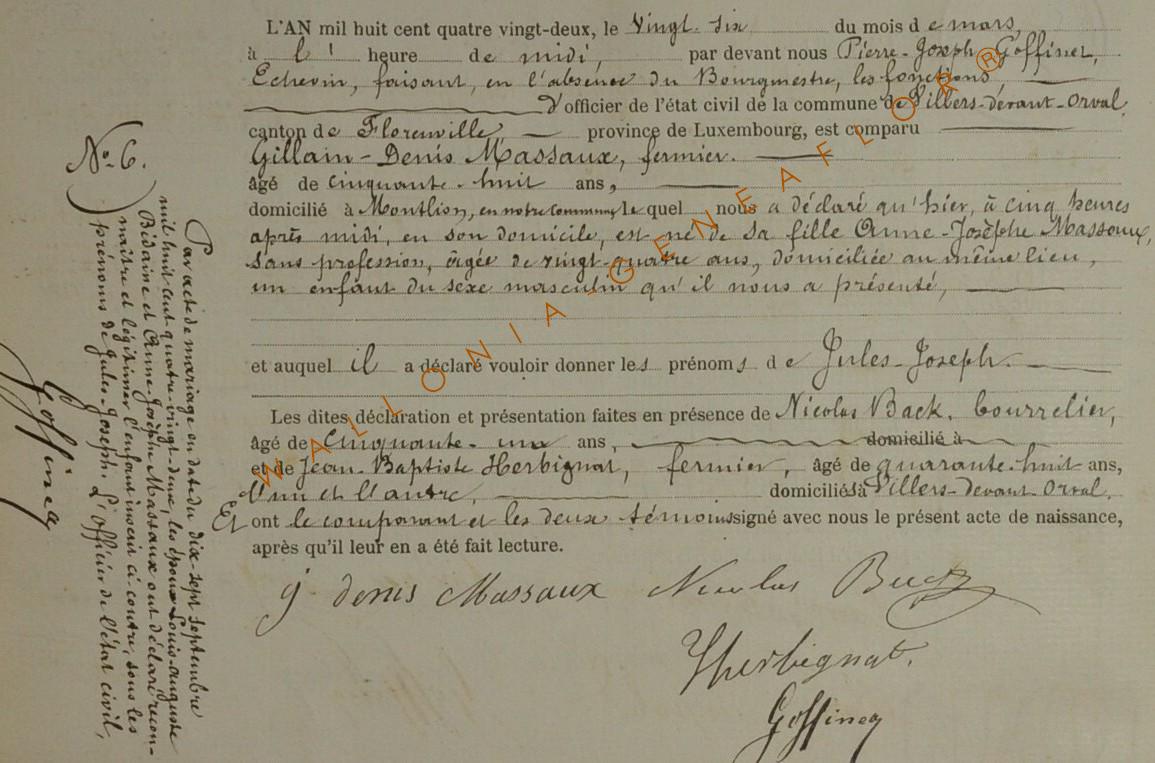 L'AN mil huit cent quatre vingt-deux, le Vingt-six du mois de mars,
à l' heure de midi, par devant nous Pierre-Joseph Goffinet,
Echevin, faisant, en l'absence du Bourgmestre, les fonctions
d'officier de l'état civil de la commune de Villers-devant-Orval,
canton de Florenville, province de Luxembourg, est comparu
Gillain-Denis Massaux, fermier.
âgé de cinquante-huit ans,
domicilié à Montlion, en notre commune, lequel nous a déclaré qu'hier, à cinq heures
après midi, en son domicile, est né de sa fille Anne-Josèphe Massaux,
sans profession, âgée de vingt-quatre ans, domiciliée au même lieu,
un enfant du sexe masculin qu'il nous a présenté,
et auquel il a déclaré vouloir donner les prénoms de Jules-Joseph.
Les dites déclaration et présentation faites en présence de Nicolas Back, bourrelier,
âgé de Cinquante-un ans, domicilié à
et de Jean-Baptiste Herbignat, fermier, âgé de quarante-huit ans,
l'un et l'autre, domiciliés à Villers-devant-Orval,
Et ont le comparant et les deux témoins signé avec nous le présent acte de naissance,
après qu'il leur en a été fait lecture.
g denis Massaux Nicolas
Jherbignat.
Goffinet
No. 6.
Par acte de mariage en date du dix-sept septembre
mil huit cent quatre-vingt-deux, les époux Louis-auguste
Bidaine et Anne-Josèphe Massaux ont déclaré recon-
naître et légitimer l'enfant inscrit ci-contre, sous les
prénoms de Jules-Joseph. L'officier de l'état civil,
Goffinet
WALLONIA-GENEAFLOR®